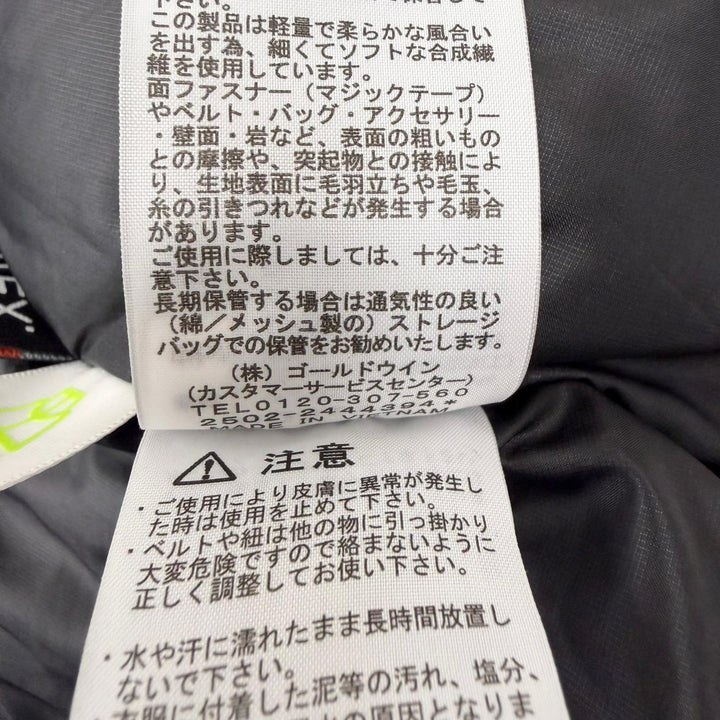 下さい。
この製品は軽量で柔らかな風合い
を出す為、細くてソフトな合成繊
維を使用しています。
面ファスナー（マジックテープ）
やベルト・バッグ・アクセサリー
・壁面・岩など、表面の粗いもの
との摩擦や、突起物との接触によ
り、生地表面に毛羽立ちや毛玉、
糸の引きつれなどが発生する場合
があります。
ご使用に際しましては、十分ご注
意下さい。
長期保管する場合は通気性の良い
（綿／メッシュ製の）ストレージ
バッグでの保管をお勧めいたします。
（株）ゴールドウイン
（カスタマーサービスセンター）
TEL0120-307-560
2502-2444394*
MADE IN VIETNAM
注意
・ご使用により皮膚に異常が発生し
た時は使用を止めて下さい。
・ベルトや紐は他の物に引っ掛かり
大変危険ですので絡まないように
正しく調整してお使い下さい。
・水や汗に濡れたまま長時間放置し
ないで下さい。
・衣服に付着した泥等の汚れ、塩分、
の原因となりま